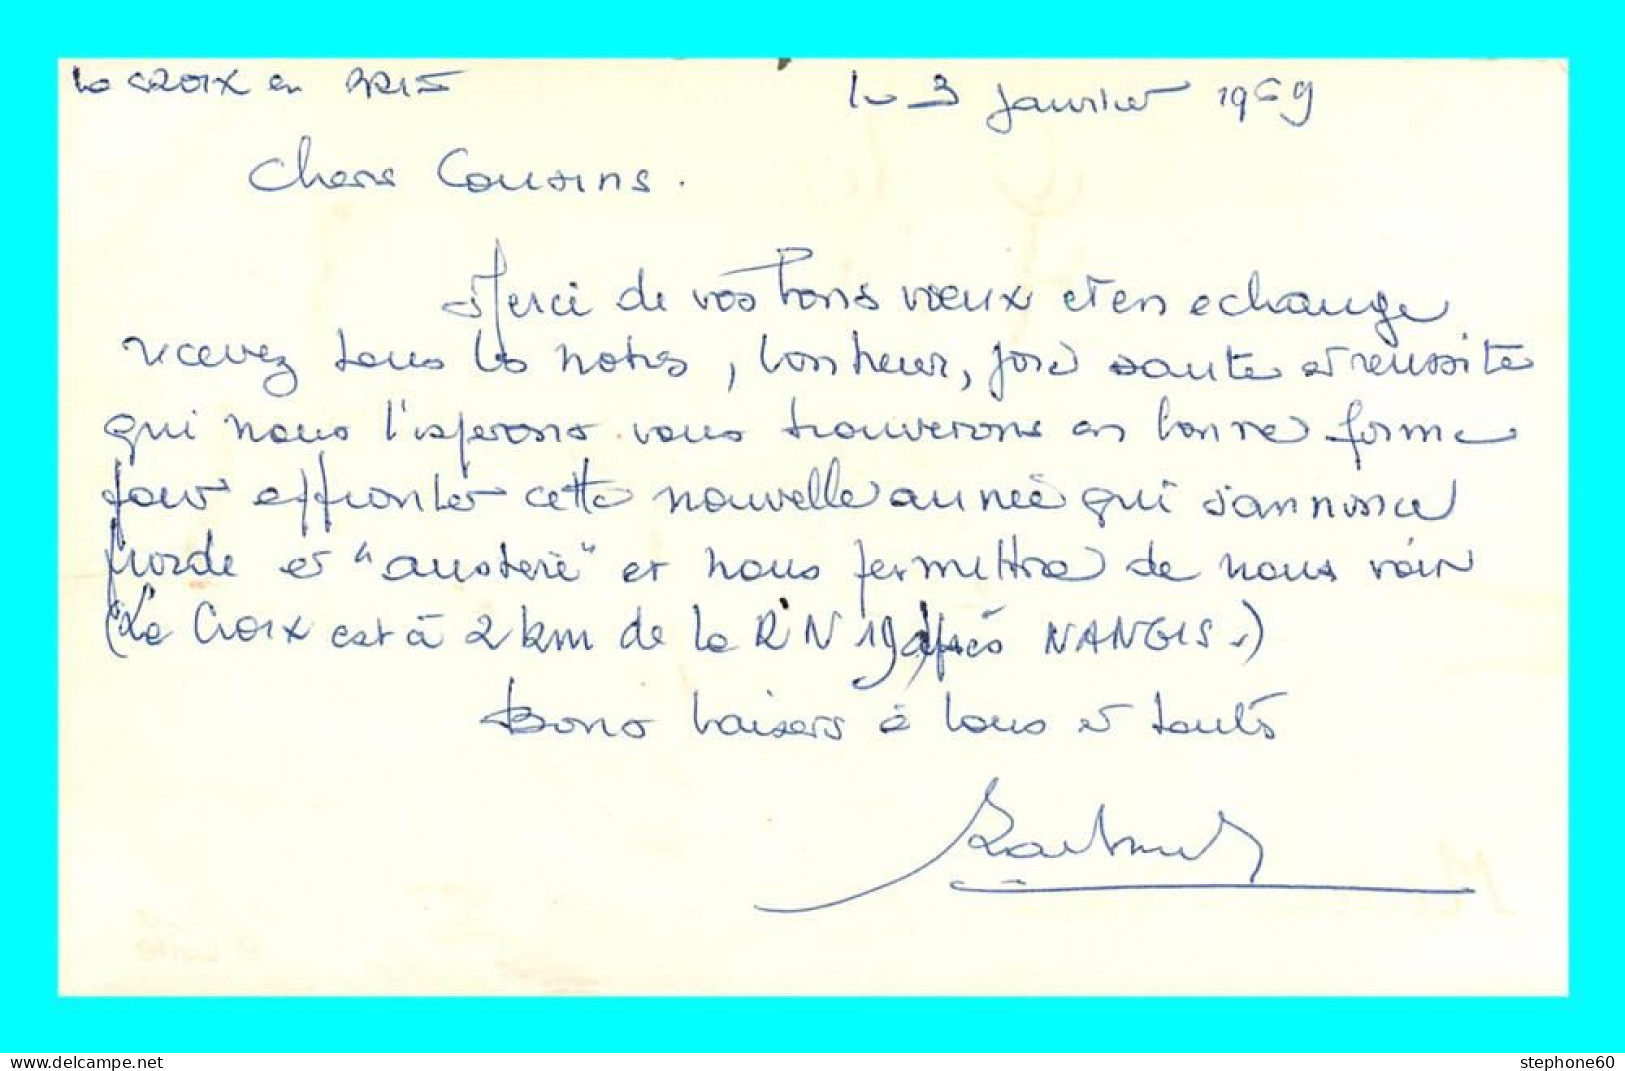 La CROIX en BRIE
le 3 janvier 1969
Chers Cousins.
Merci de vos bons voeux et en echange
recevez tous les notres, bonheur, joie santé et reussite
qui nous l'esperons vous trouverons en bonne forme
pour affronter cette nouvelle année qui s'annonce
froide et "austere" et nous permettra de nous voir
(La Croix est à 2 km de la RN 19 après NANGIS.)
Bons baisers à tous et toutes
www.delcampe.net
stephone60